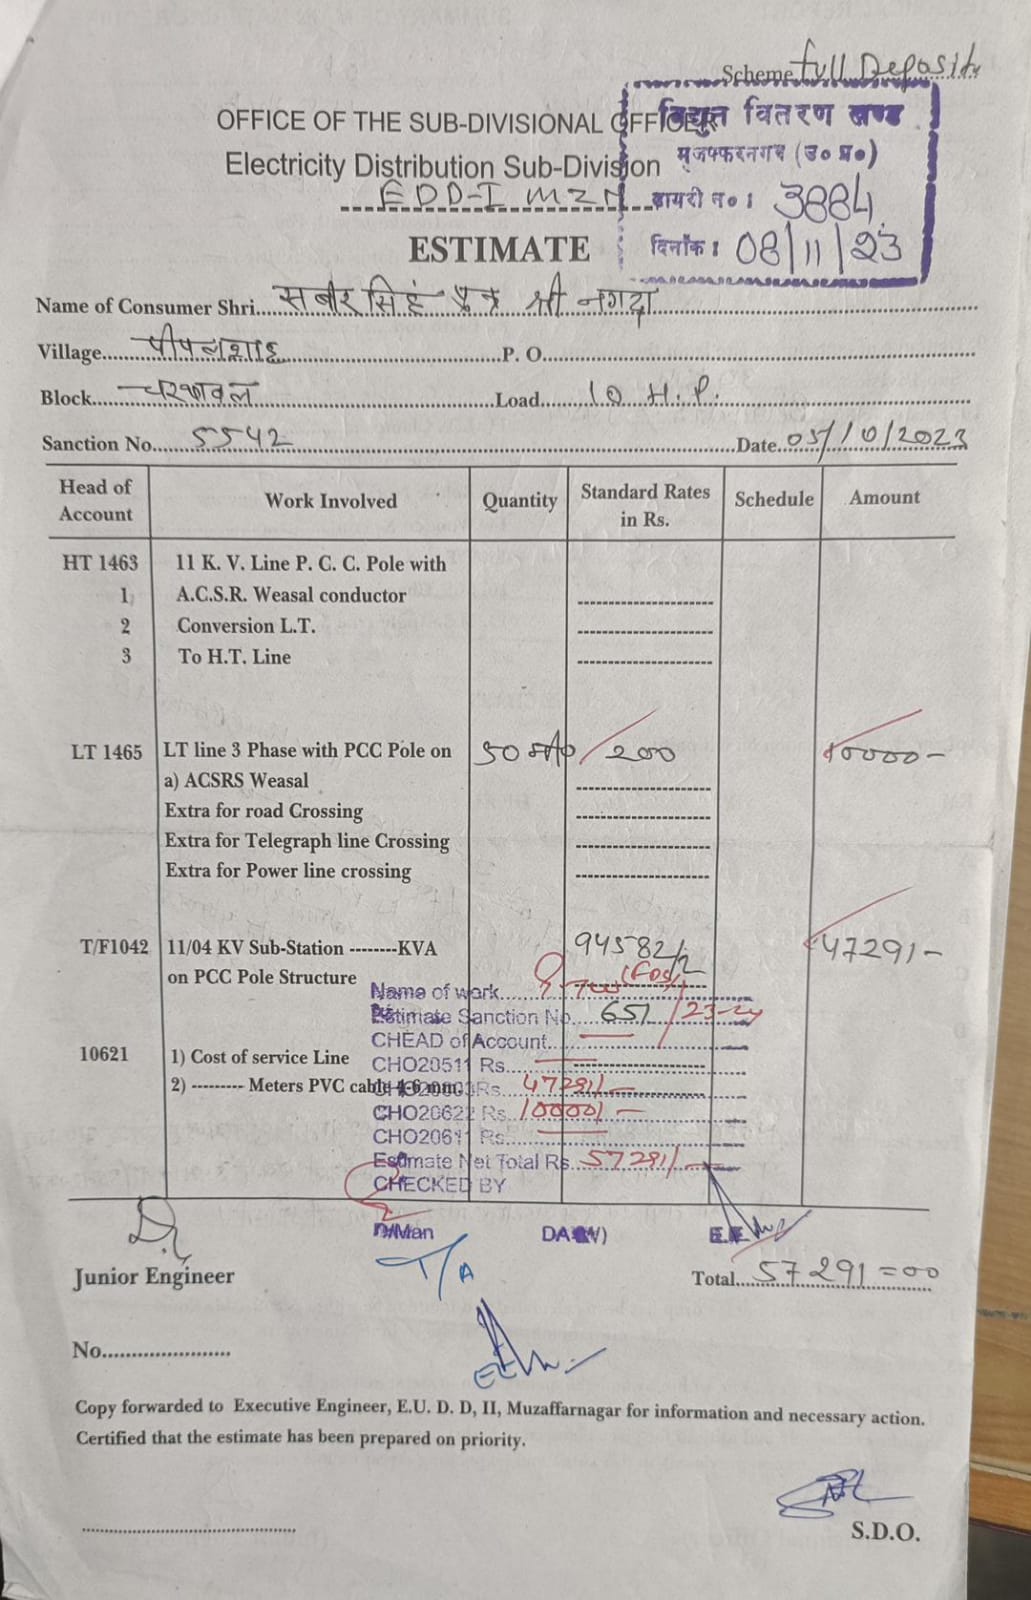 Scheme Full Deposit
OFFICE OF THE SUB-DIVISIONAL OFFICER
Electricity Distribution Sub-Division
EDD-I MZN
विद्युत वितरण खण्ड
मुजफ्फरनगर (उ० प्र०)
डायरी न० : 3884
दिनाँक : 08/11/23
ESTIMATE
Name of Consumer Shri सबीर सिंह पुत्र श्री नगदा
Village पीपलशाह P. O.
Block चरथावल Load 10 H.P.
Sanction No. 5542 Date 05/10/2023
Head of Account Work Involved Quantity Standard Rates in Rs. Schedule Amount
HT 1463 11 K. V. Line P. C. C. Pole with
1 A.C.S.R. Weasal conductor
2 Conversion L.T.
3 To H.T. Line
LT 1465 LT line 3 Phase with PCC Pole on 50 मी० / 200 10000-
a) ACSRS Weasal
Extra for road Crossing
Extra for Telegraph line Crossing
Extra for Power line crossing
T/F1042 11/04 KV Sub-Station --------KVA 94582/2 47291-
on PCC Pole Structure
Name of work
Estimate Sanction No. 651 / 23-24
CHEAD of Account
10621 1) Cost of service Line
CHO20511 Rs.
2) --------- Meters PVC cable 4-6 mm. Rs. 47291/-
CHO20622 Rs. 10000/-
CHO20611 Rs.
Estimate Net Total Rs. 57291/-
CHECKED BY
D/Man DA(W) E.E.
T/A
Junior Engineer
Total 57291=00
No.
Copy forwarded to Executive Engineer, E.U. D. D, II, Muzaffarnagar for information and necessary action.
Certified that the estimate has been prepared on priority.
S.D.O.